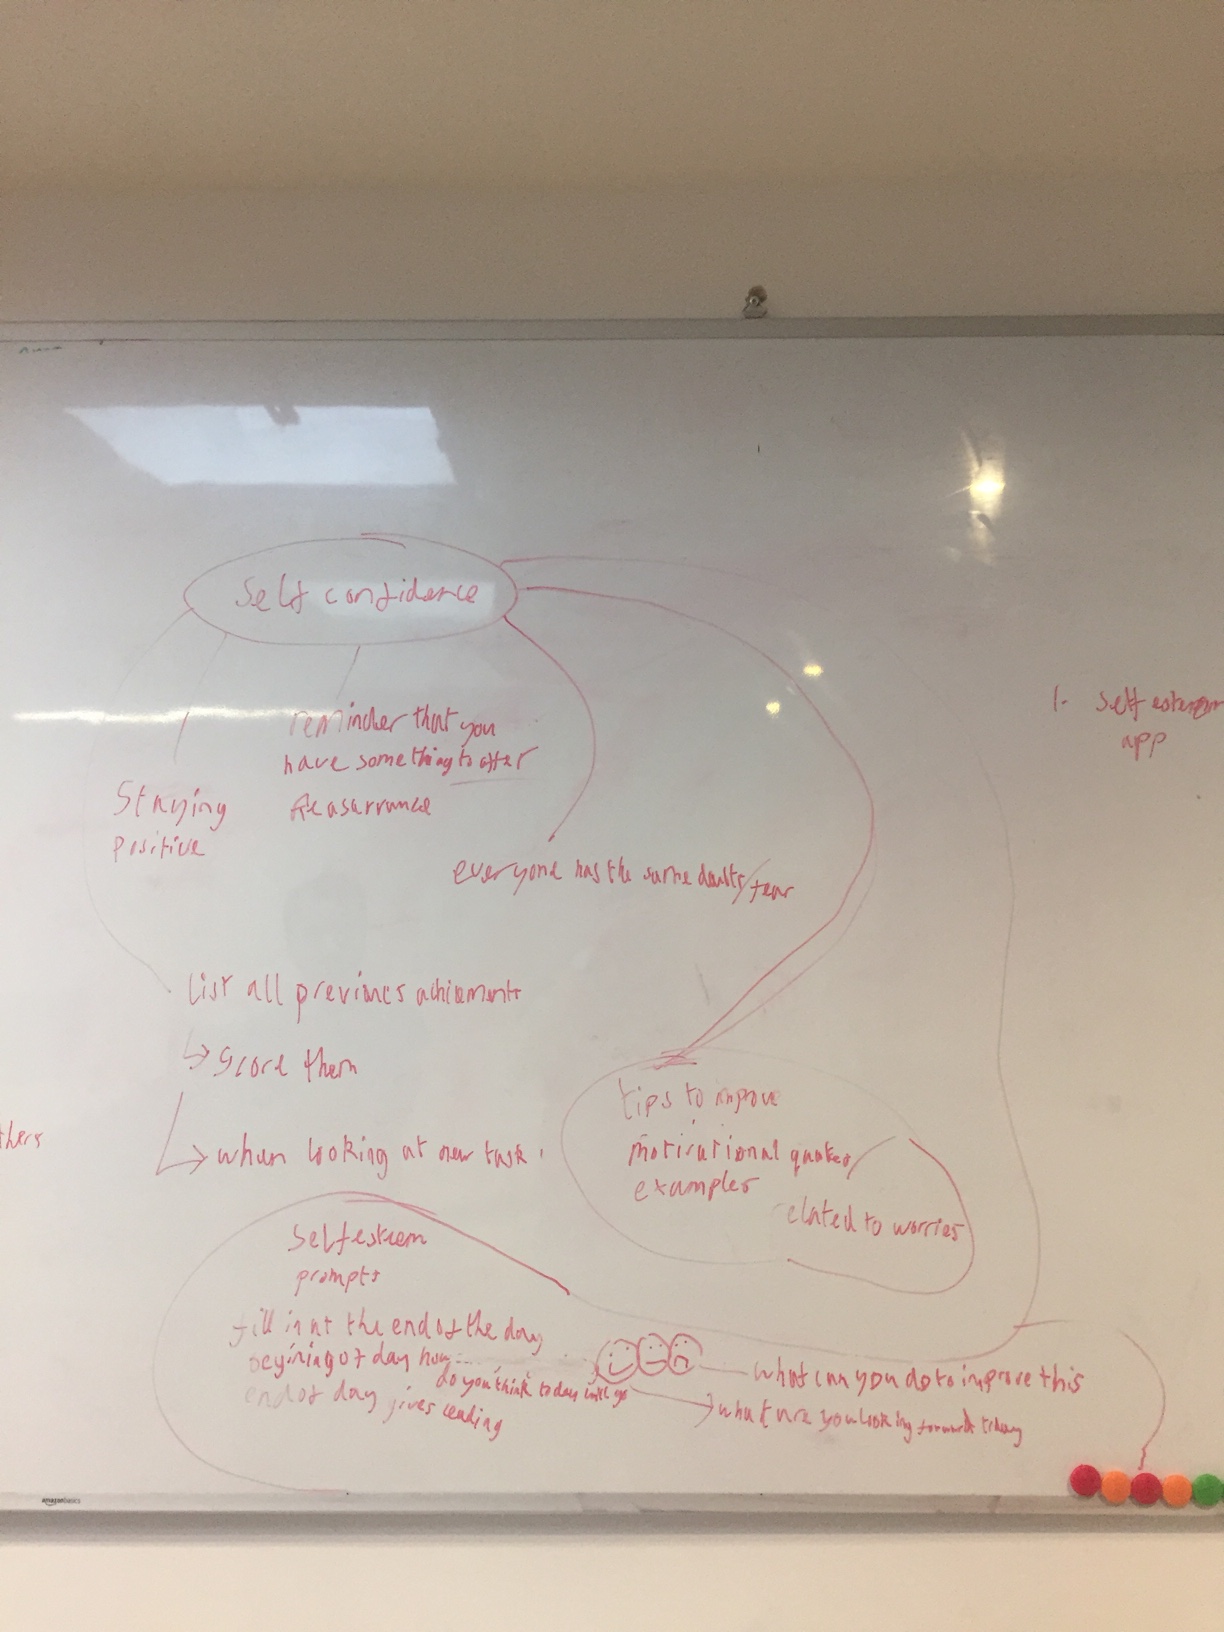 Self confidence
reminder that you
have something to offer
Reasurrance
Staying
positive
everyone has the same doubts/fear
1. Self esteem
app
List all previous achiements
↳ Score them
→ when looking at new task.
thers
tips to improve
motivational quotes/
examples
related to worries
Self esteem
prompts
fill in at the end of the day
begining of day how
do you think today will go
end of day gives
what can you do to improve this
what are you looking forward
amazonbasics